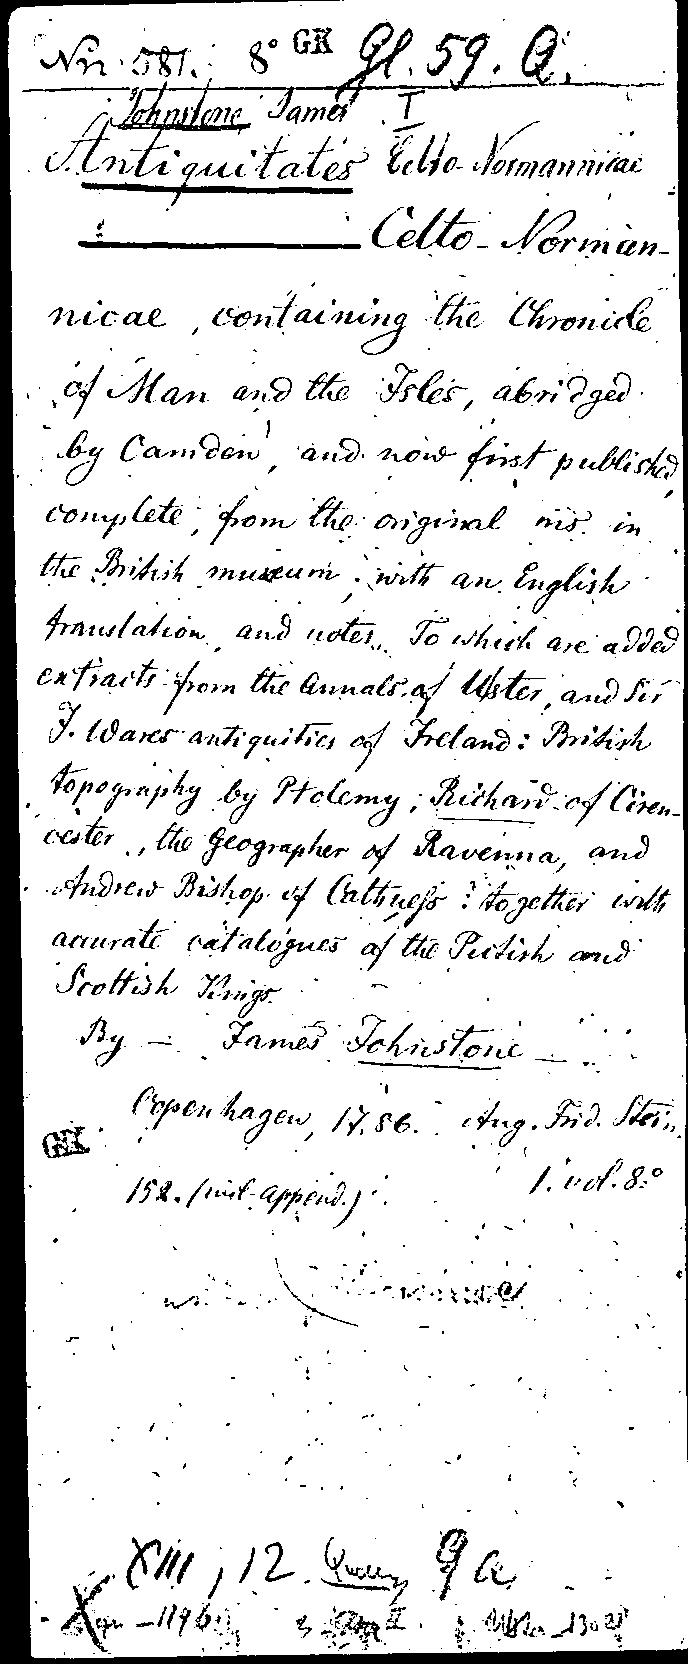 Nr. 581. 8° GK Gl. 59. Q.
Johnstone, James I
Antiquitates Celto-Normannicae
Celto-Norman-
nicae, containing the Chronicle
of Man and the Isles, abridged
by Camden, and now first published,
complete, from the original ms. in
the British museum, with an English
translation, and notes. To which are added
extracts from the Annals of Ulster, and Sir
J. Wares antiquities of Ireland: British
topography by Ptolemy, Richard of Ciren-
cester, the Geographer of Ravenna, and
Andrew Bishop of Cathness: together with
accurate catalogues of the Pictish and
Scottish Kings.
By — James Johnstone
Copenhagen, 1786. Aug. Frid. Stein.
GK
152. (incl. append.) 1. vol. 8°
XIII, 12. 9 a